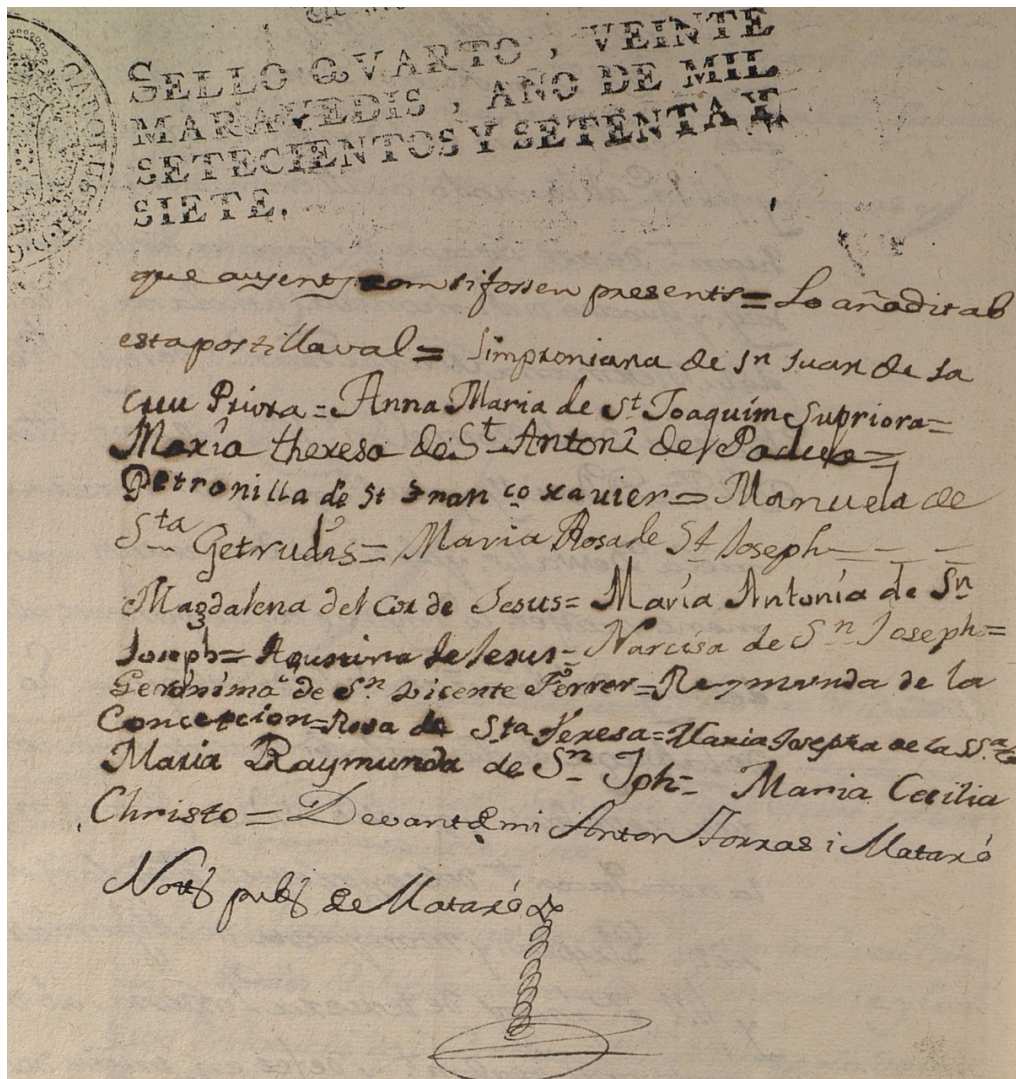 SELLO QVARTO, VEINTE
MARAVEDIS, AÑO DE MIL
SETECIENTOS Y SETENTA Y
SIETE.
CAROLUS III D.G.
que ausents com si fossen presents = Lo añadit ab
esta postilla val = Simproniana de Sn Juan de la
Cruu Priora = Anna Maria de St. Joaquim Supriora =
María theresa de St. Antoni de Padua =
Petronilla de St Fran.co xavier = Manuela de
Sta Getrudas = Maria Rosa de St Joseph
Magdalena del Cor de Jesus = María Antonía de Sn
Joseph = Agustina de Jesus = Narcisa de Sn Joseph =
Gerónima de Sn Vicente Ferrer = Raymunda de la
Concepcion = Rosa de Sta Teresa = Maria Josepha de la SS.a
Maria Raymunda de Sn Jph = Maria Cecilia
Christo = Devant de mi Anton Torras i Mataró
Notj pubj de Mataró